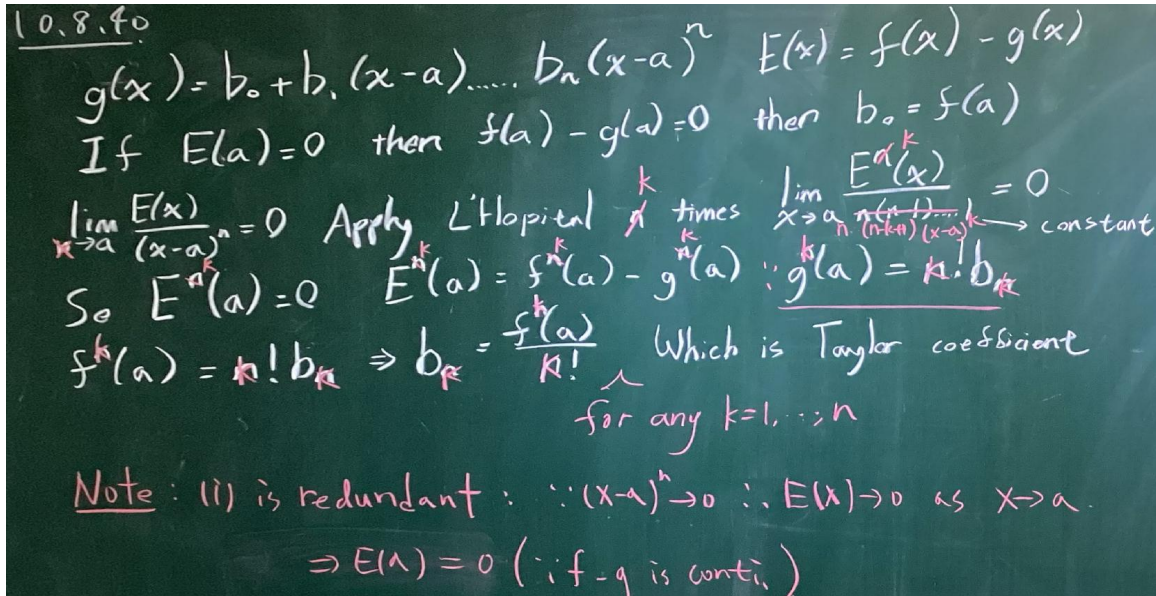 10.8.40
g(x) = b₀ + b₁(x-a)...... bₙ(x-a)ⁿ E(x) = f(x) - g(x)
If E(a)=0 then f(a) - g(a)=0 then b₀ = f(a)
lim x→a E(x)/(x-a)ⁿ = 0 Apply L'Hopital k times lim x→a Eᵏ(x)/n...(n-k+1)(x-a) = 0 → constant
So Eᵏ(a)=0 Eᵏ(a) = fᵏ(a) - gᵏ(a) ∵ gᵏ(a) = k! bₖ
fᵏ(a) = k! bₖ ⇒ bₖ = fᵏ(a)/k! Which is Taylor coefficient
for any k=1,...,n
Note : (i) is redundant : ∵ (x-a)ⁿ→0 ∴ E(x)→0 as x→a.
⇒ E(a) = 0 (∵ f-g is conti.)